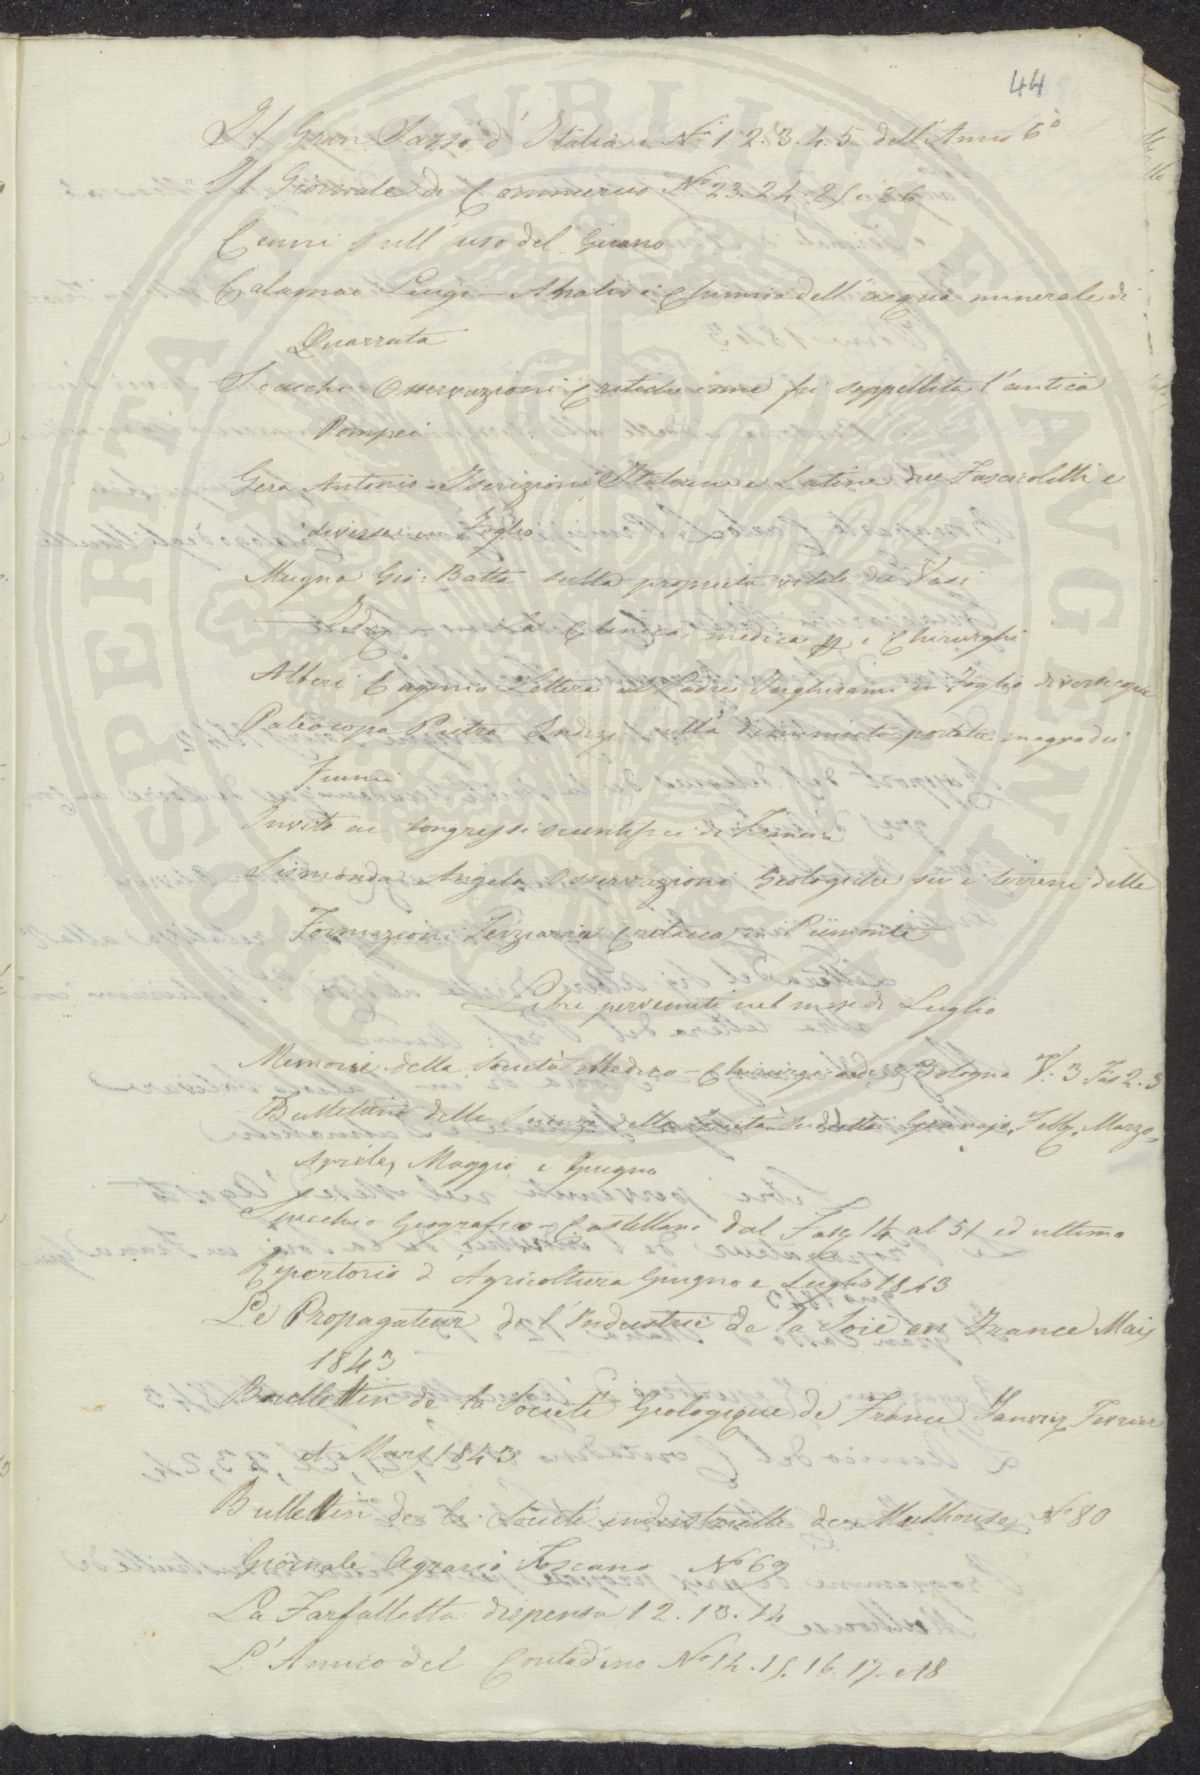 44
Il Gran Sasso d'Italia N.i 1. 2. 3. 4. 5 dell'Anno 6°
Il Giornale di Commercio N° 23. 24. 25. e 26
Cenni sull'uso del Guano
Calamai Luigi - Analisi Chimica dell'acqua minerale di
Quarrata
Scacchi Osservazioni Critiche come fu seppellita l'antica
Pompei
Gera Antonio Iscrizioni Italiane e Latine due Fascicoletti e
diverse in Foglio
Mugna Gio: Batta sulla proprietà vitali dei Vasi
Idem La Clinica medica e Chirurghi
Alberi Eugenio Lettera al Padre Inghirami in Foglio diverse copie
Paleocapa Pietro sulla diminuita portata magra dei
Fiumi
Invito ai Congressi scientifici di Francia
Sismonda Angelo Osservazioni Geologiche su i terreni delle
Formazioni Terziaria e Cretacea in Piemonte
Libri pervenuti nel mese di Luglio
Memorie della Società Medico-Chirurgica di Bologna V. 3 Fas 2. 3
Bullettini delle Scienze della Società suddetta Gennajo, Febb, Marzo,
Aprile, Maggio e Giugno
Specchio Geografico - Castellani dal Fasc 14 al 51 ed ultimo
Repertorio d'Agricoltura Giugno e Luglio 1843
Le Propagateur de l'Industrie de la Soie en France Mai
1843
Boullettin de la Société Geologique de France Janvier Fevrier
et Mars 1843
Bullettin de la Société industrielle de Mulhouse N° 80
Giornale Agrario Toscano N° 69
La Farfalletta dispensa 12. 13. 14
L'Amico del Contadino N° 14. 15. 16. 17. e 18
PROSPERITATI PVBLICAE AVGENDAE